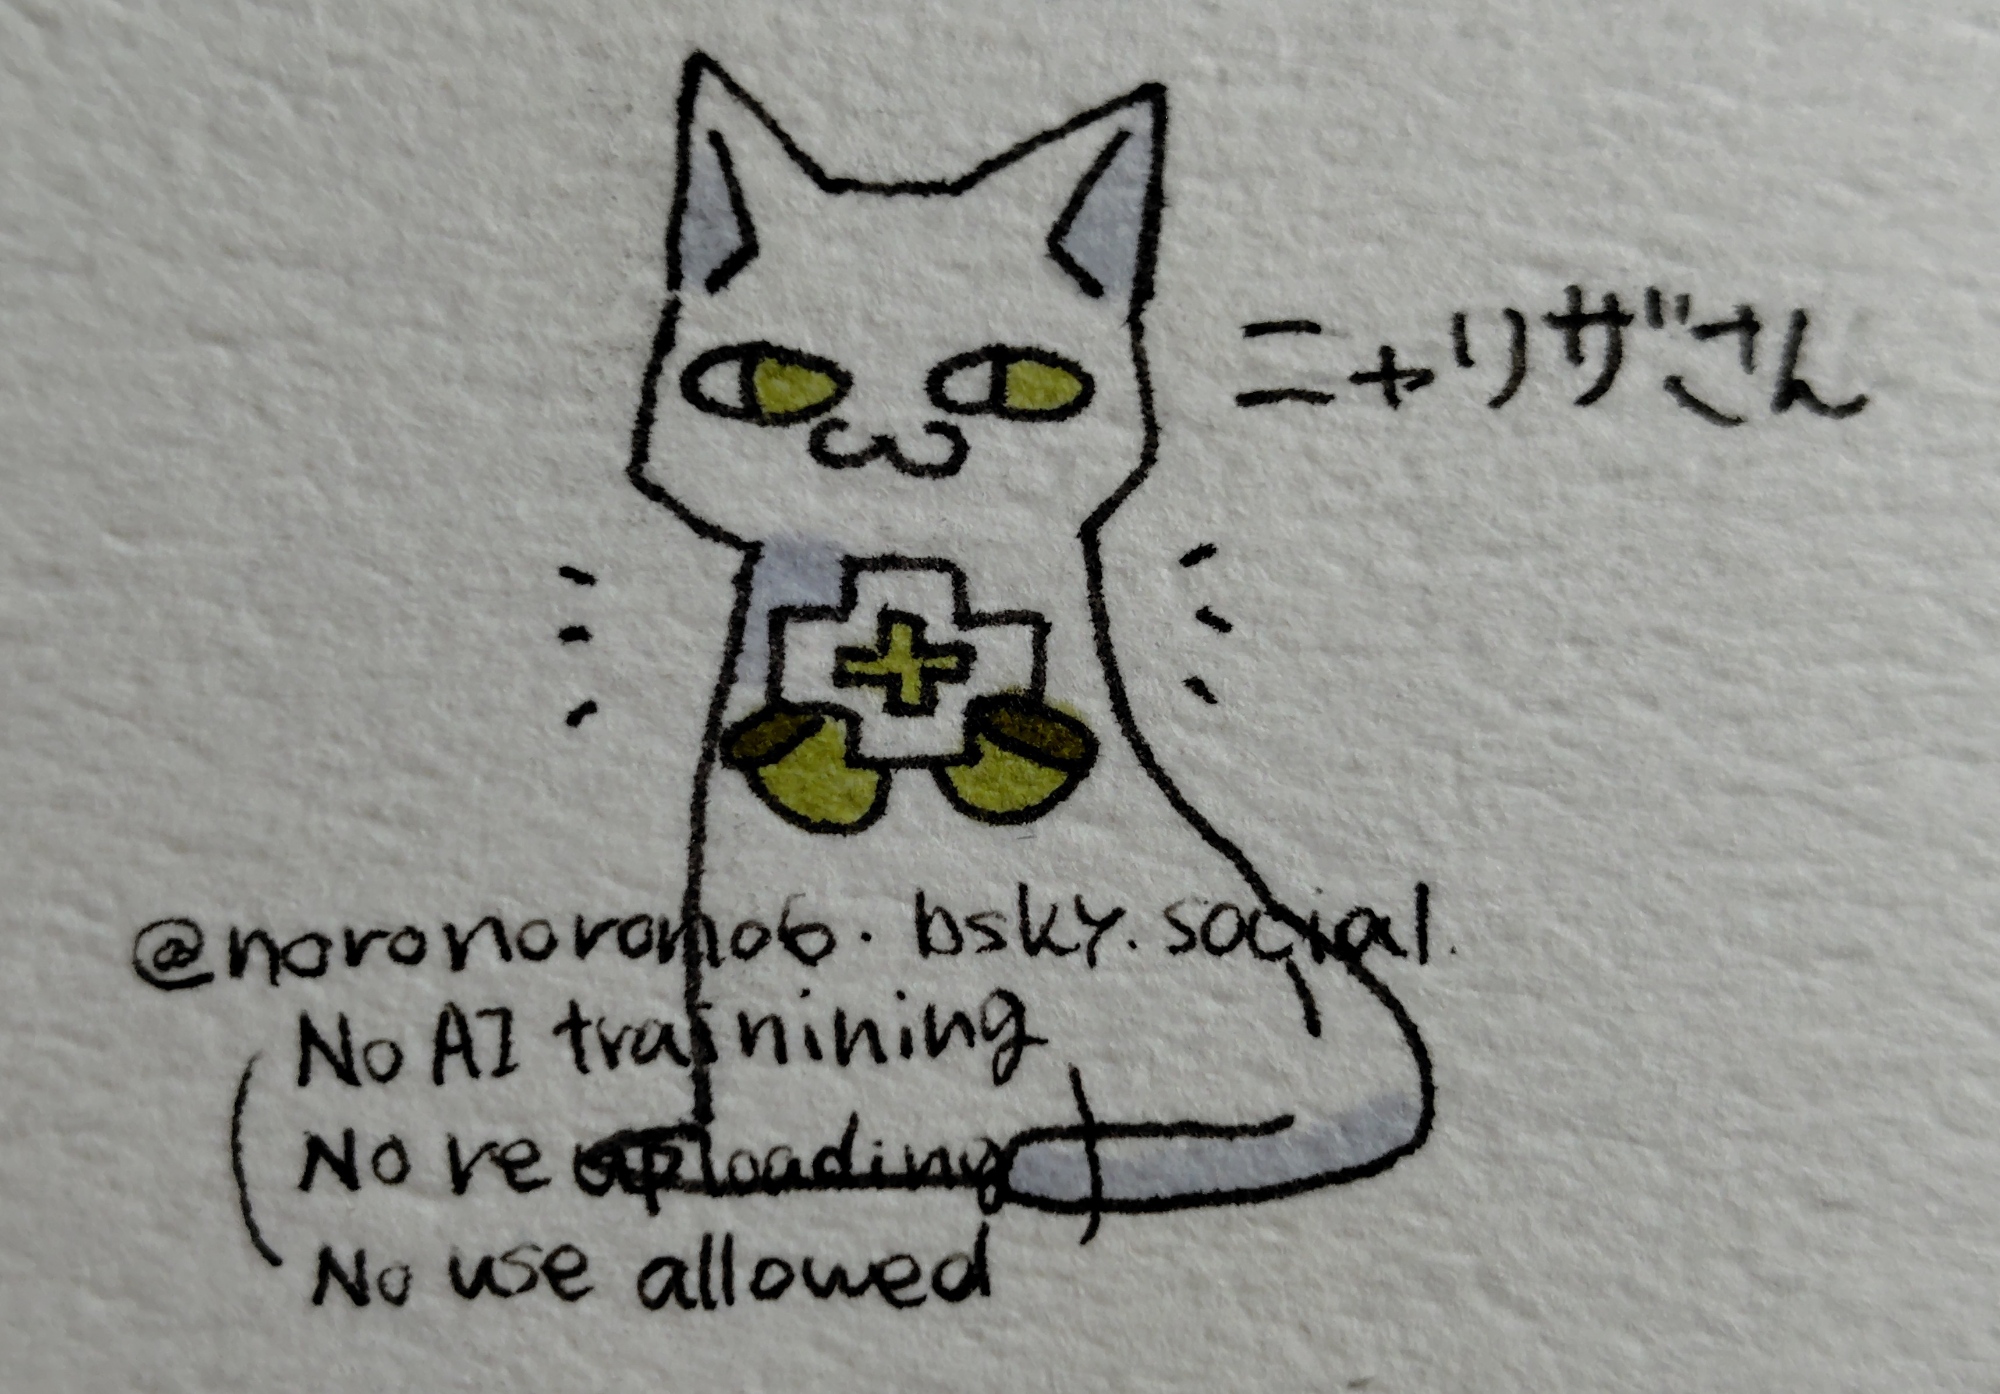 ニャリザさん
@noronoromo6.bsky.social.
No AI trainining
No reuploading
No use allowed